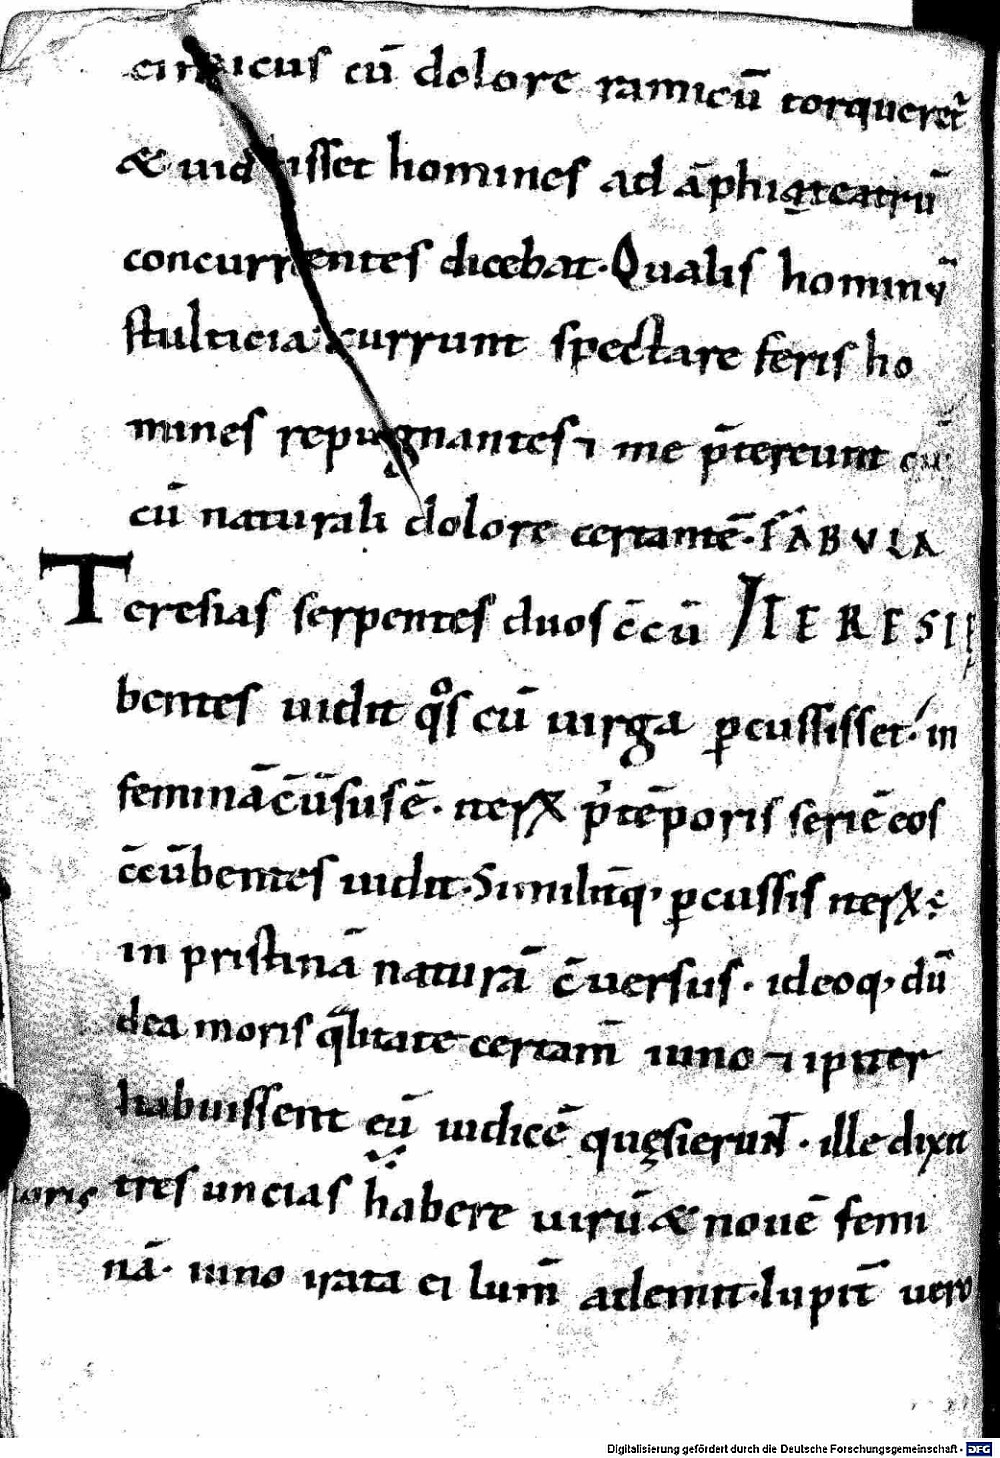 cinicus cū dolore ramicū torqueret᷑
& uidisset homines ad āphiteatrū
concurrentes dicebat. Qualis hominū
stulticia currunt spectare feris ho
mines repugnantes ⁊ me p̄tereunt
cū naturali dolore certantē. FABVLA
Teresias serpentes duos c̄cū TERESIE
bentes uidit qºs cū uirga ꝑcussisset. in
feminā c̄uersus ē. p̄ tēporis seriē eos
c̄cūbentes uidit. Similitq; ꝑcussis
in pristinā naturā c̄uersus. ideoq; dū
de amoris q̄litate certam̄ iuno ⁊ ipiter
habuissent eū iudicē quęsierunt. ille dixit
tres uncias habere uirū & nouē femi
nā. iuno irata ei lum̄ ademit. Iupit̄ uero
Digitalisierung gefördert durch die Deutsche Forschungsgemeinschaft - DFG